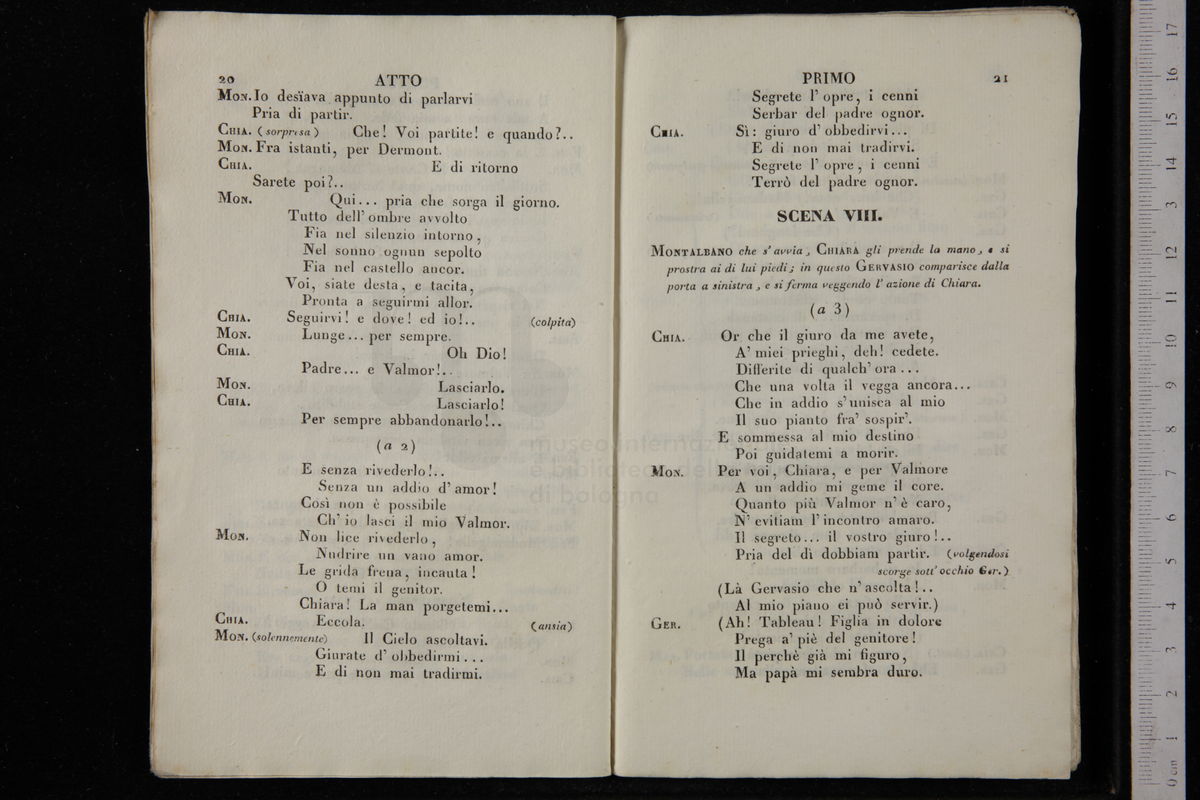 20 ATTO
Mon. Io desïava appunto di parlarvi
Pria di partir.
Chia. (sorpresa) Che! Voi partite! e quando?..
Mon. Fra istanti, per Dermont.
Chia. E di ritorno
Sarete poi?..
Mon. Qui... pria che sorga il giorno.
Tutto dell' ombre avvolto
Fia nel silenzio intorno,
Nel sonno ognun sepolto
Fia nel castello ancor.
Voi, siate desta, e tacita,
Pronta a seguirmi allor.
Chia. Seguirvi! e dove! ed io!.. (colpita)
Mon. Lunge... per sempre.
Chia. Oh Dio!
Padre... e Valmor!..
Mon. Lasciarlo.
Chia. Lasciarlo!
Per sempre abbandonarlo!..
(a 2)
E senza rivederlo!..
Senza un addio d' amor!
Così non è possibile
Ch' io lasci il mio Valmor.
Mon. Non lice rivederlo,
Nudrire un vano amor.
Le grida frena, incauta!
O temi il genitor.
Chiara! La man porgetemi...
Chia. Eccola. (ansia)
Mon. (solennemente) Il Cielo ascoltavi.
Giurate d' obbedirmi...
E di non mai tradirmi.
PRIMO 21
Segrete l' opre, i cenni
Serbar del padre ognor.
Chia. Sì: giuro d' obbedirvi...
E di non mai tradirvi.
Segrete l' opre, i cenni
Terrò del padre ognor.
SCENA VIII.
Montalbano che s' avvia, Chiara gli prende la mano, e si
prostra ai di lui piedi; in questo Gervasio comparisce dalla
porta a sinistra, e si ferma veggendo l' azione di Chiara.
(a 3)
Chia. Or che il giuro da me avete,
A' miei prieghi, deh! cedete.
Differite di qualch' ora...
Che una volta il vegga ancora...
Che in addio s' unisca al mio
Il suo pianto fra' sospir'.
E sommessa al mio destino
Poi guidatemi a morir.
Mon. Per voi, Chiara, e per Valmore
A un addio mi geme il core.
Quanto più Valmor n' è caro,
N' evitiam l' incontro amaro.
Il segreto... il vostro giuro!..
Pria del dì dobbiam partir. (volgendosi
scorge sott' occhio Ger.)
(Là Gervasio che n' ascolta!..
Al mio piano ei può servir.)
Ger. (Ah! Tableau! Figlia in dolore
Prega a' piè del genitore!
Il perchè già mi figuro,
Ma papà mi sembra duro.
museo internazi
e biblioteca della
di bologna
0 cm 1 2 3 4 5 6 7 8 9 10 11 12 13 14 15 16 17